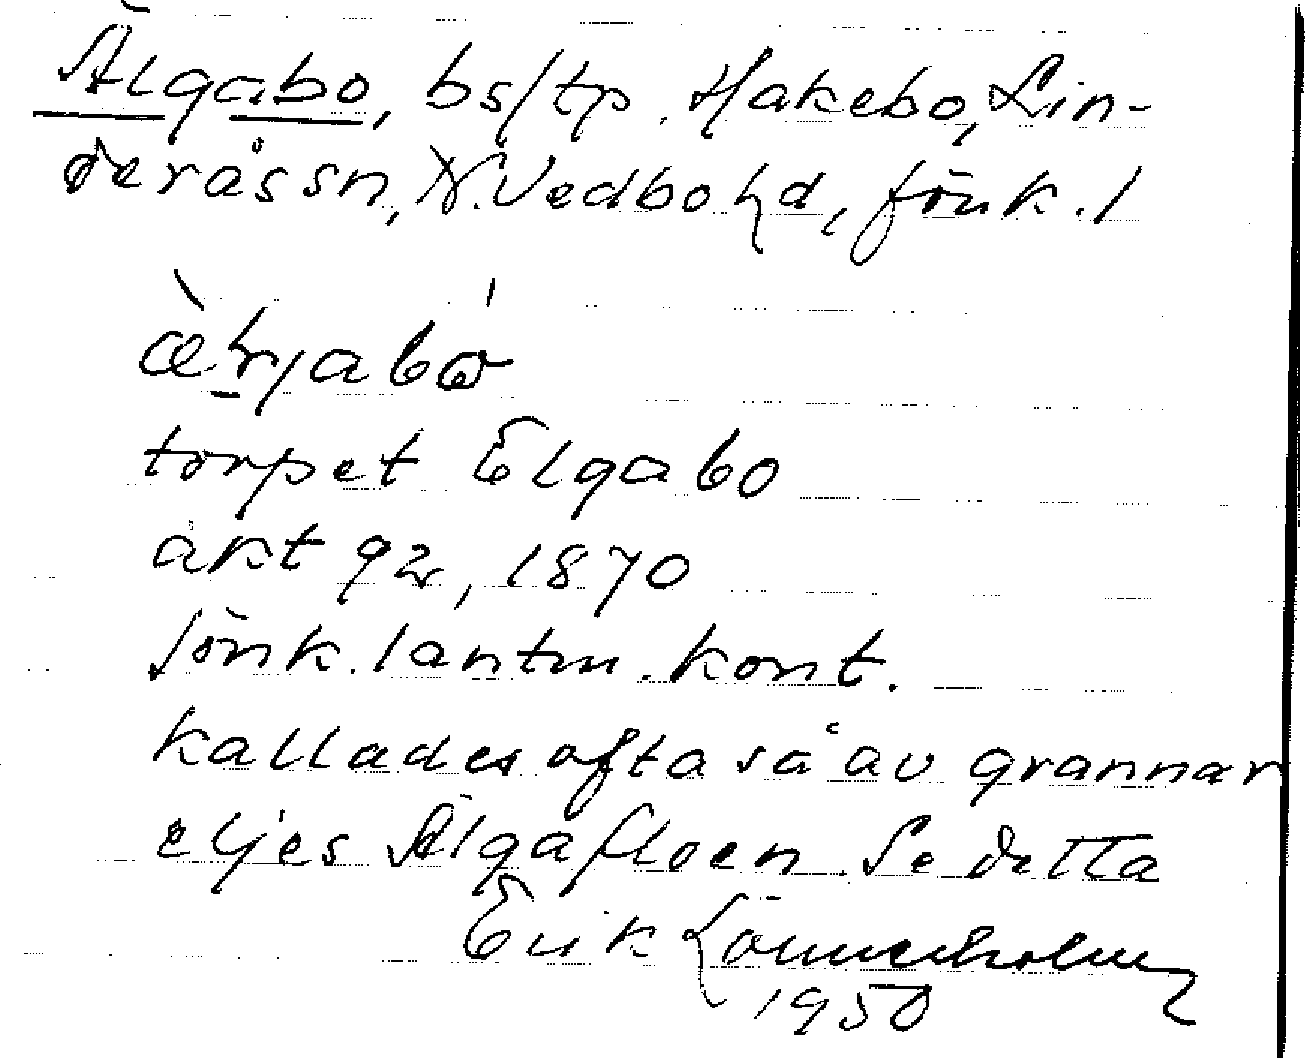 Älgabo, bs/tp. Hakebo, Lin-
derås sn, N. Vedbo hd, Jönk. l
torpet Elgabo
akt 92, 1870
Jönk. lantm. kont.
kallades ofta så av grannar
eljes Älgafloen. Se detta
Erik Lönnerholm
1950